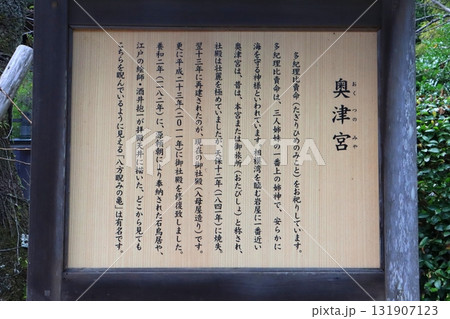 奥津宮
おく つの みや
多紀理比賣命(たぎりひめのみこと)をお祀りしています。
多紀理比賣命は、三人姉妹の一番上の姉神で、安らかに
海を守る神様といわれています。相模湾を臨む岩屋に一番近い
奥津宮は、昔は、本宮または御旅所(おたびしょ)と称され、
社殿は壮麗を極めていましたが、天保十二年(一八四一年)に焼失。
翌十三年に再建されたのが、現在の御社殿(入母屋造り)です。
更に平成二十三年(二〇一一年)に御社殿を修復致しました。
養和二年(一一八二年)に、源頼朝により奉納された石鳥居や、
江戸の絵師・酒井抱一が拝殿天井に描いた、どこから見ても
こちらを睨んでいるように見える「八方睨みの亀」は有名です。
131907123